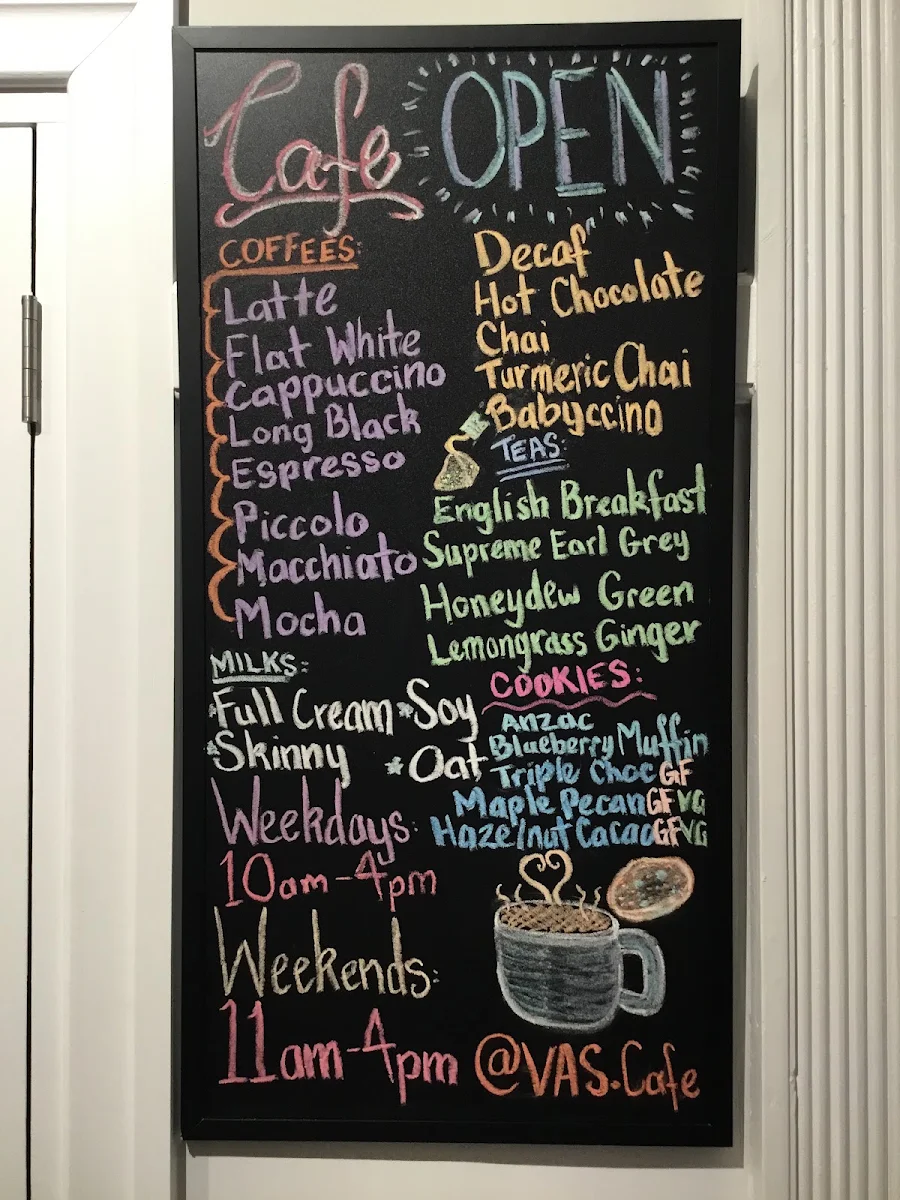 Cafe OPEN
COFFEES:
Latte
Flat White
Cappuccino
Long Black
Espresso
Piccolo
Macchiato
Mocha
Decaf
Hot Chocolate
Chai
Turmeric Chai
Babyccino
TEAS:
English Breakfast
Supreme Earl Grey
Honeydew Green
Lemongrass Ginger
MILKS:
*Full Cream *Soy
*Skinny *Oat
COOKIES:
Anzac
Blueberry Muffin
Triple Choc GF
Maple Pecan GF VG
Hazelnut Cacao GF VG
Weekdays:
10am-4pm
Weekends:
11am-4pm
@VAS.Cafe